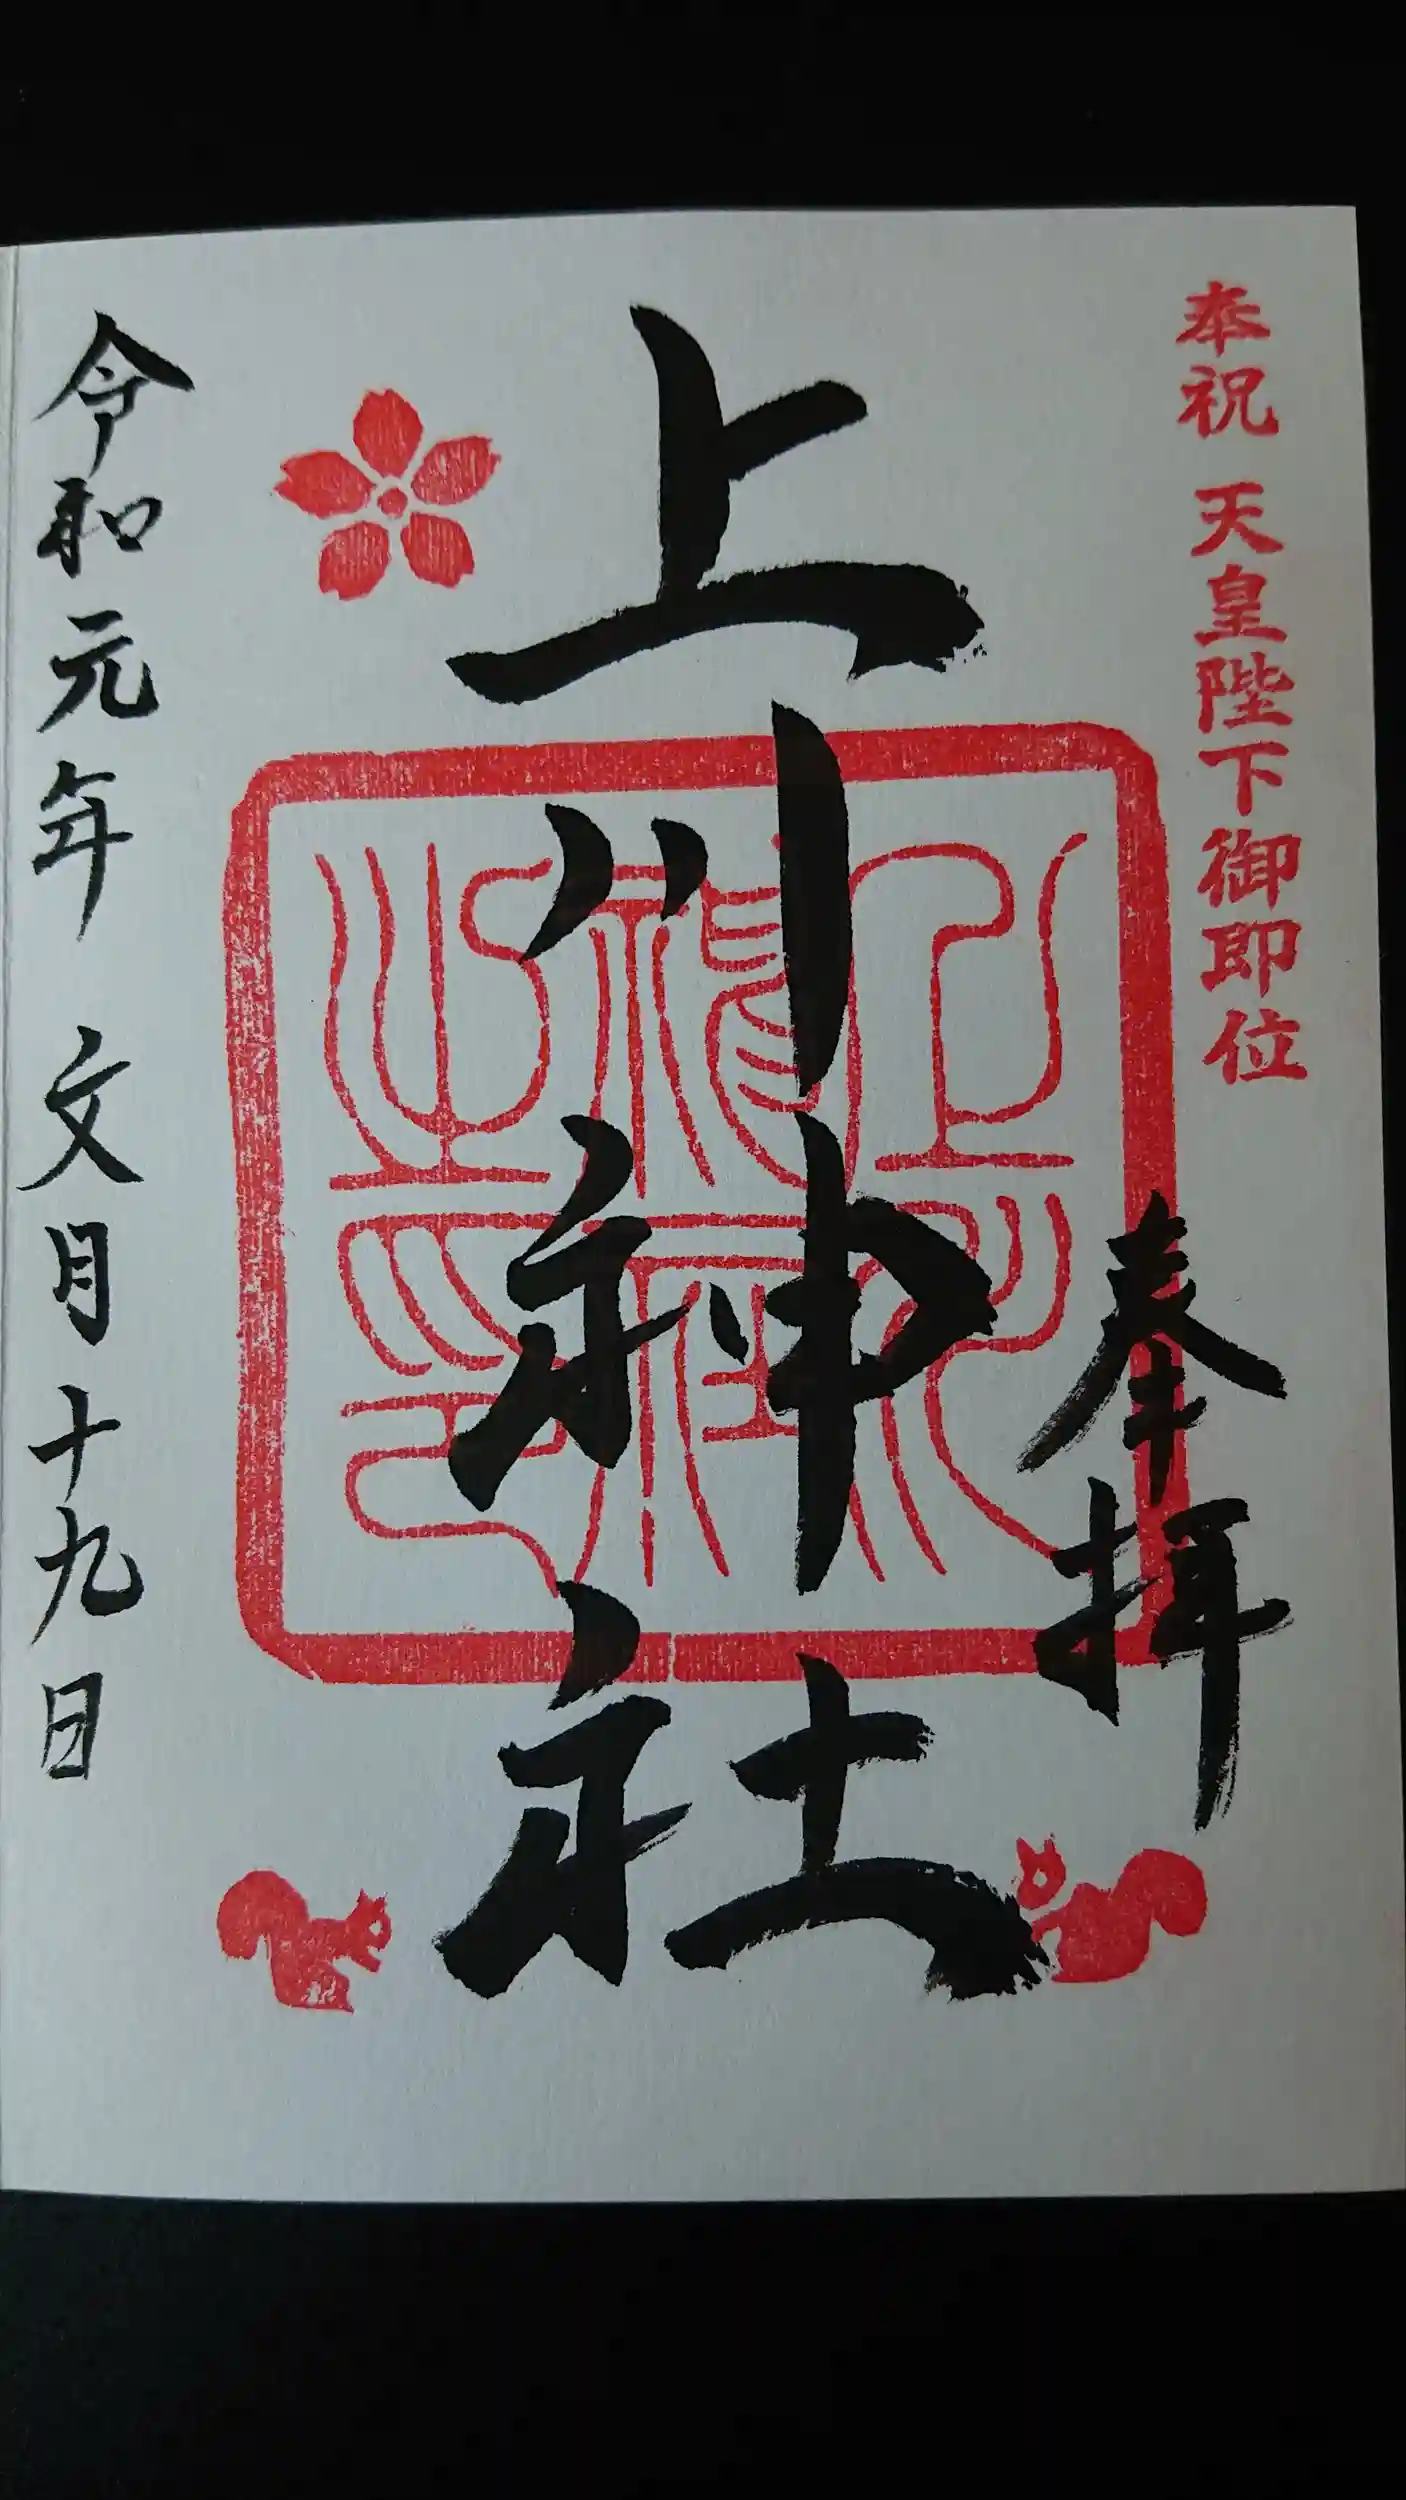 奉祝 天皇陛下御即位
奉拝
上川神社
上川神社之印
令和元年 文月十九日